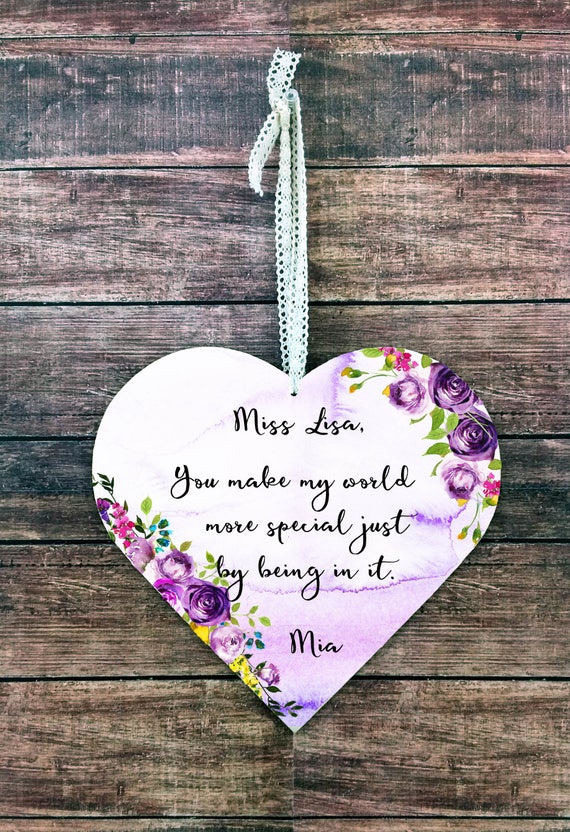 Miss Lisa,
You make my world
more special just
by being in it.
Mia